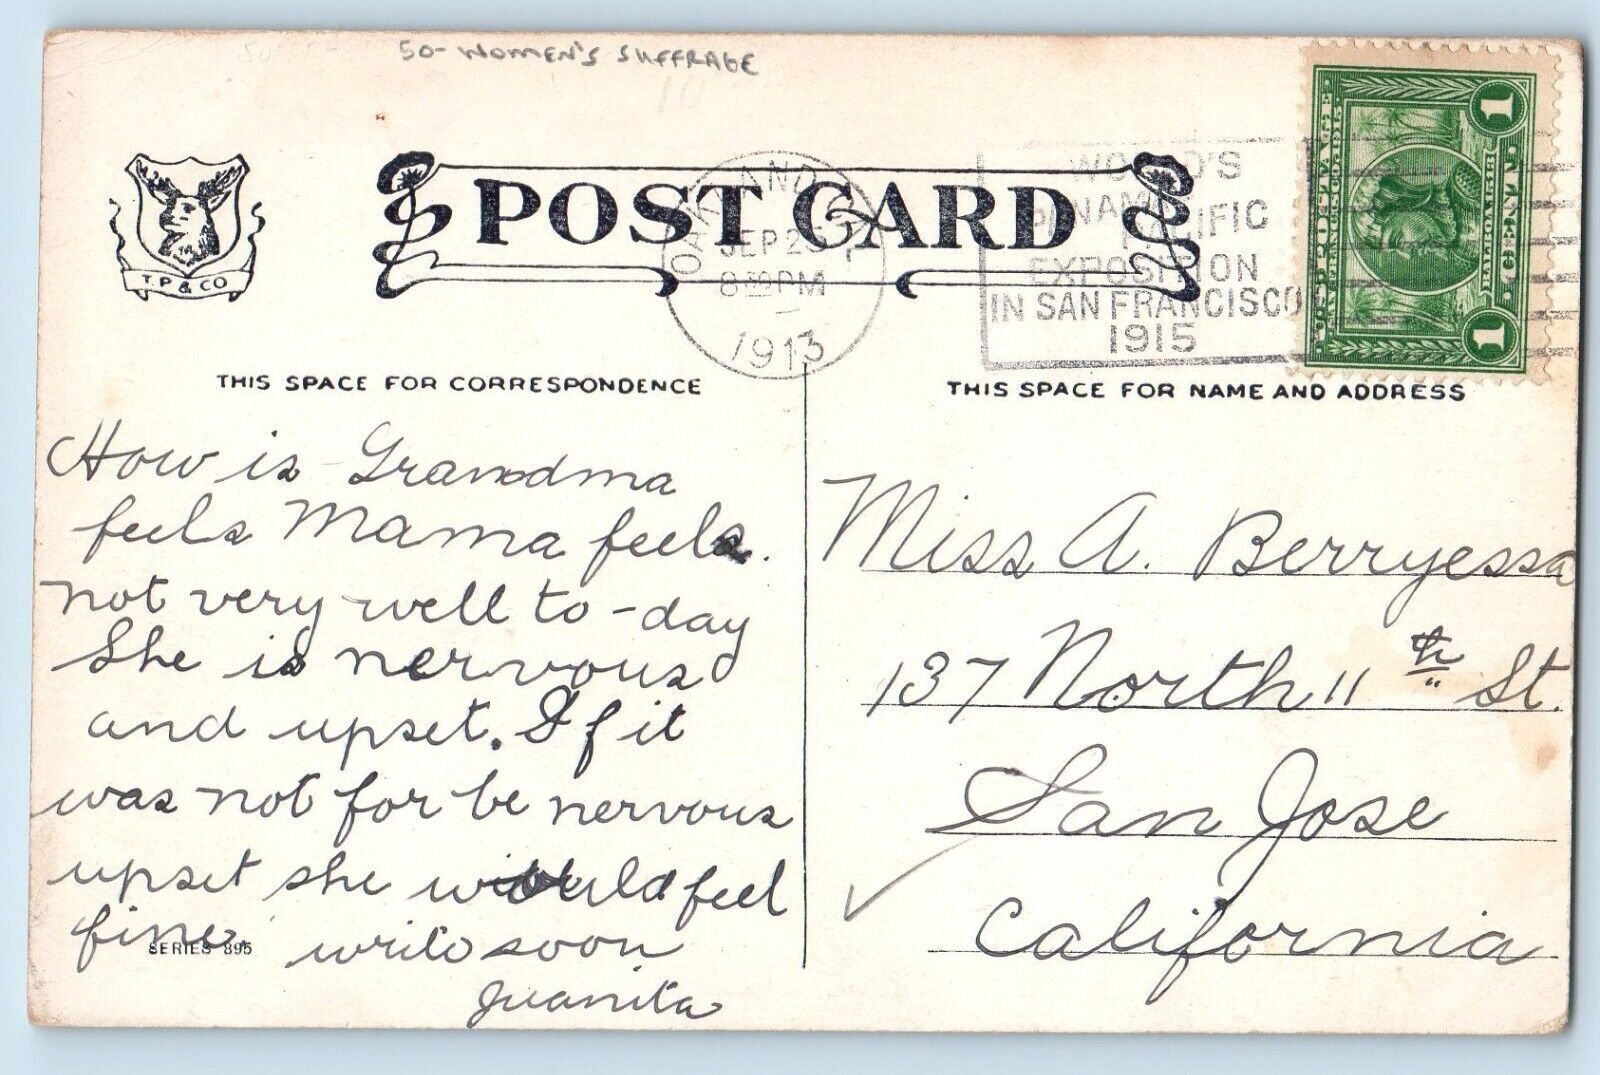 50- WOMEN'S SUFFRAGE
POST CARD
T. P. & CO
OAKLAND
SEP 25
8 30 PM
1913
WORLD'S
PANAMA
PACIFIC
EXPOSITION
IN SAN FRANCISCO
1915
1
1
THIS SPACE FOR CORRESPONDENCE
THIS SPACE FOR NAME AND ADDRESS
How is Grandma
feels Mama feels.
not very well to-day
She is nervous
and upset. If it
was not for be nervous
upset she would feel
fine. write soon
Juanita
SERIES 895
Miss A. Berryessa
137 North 11th St.
San Jose
California